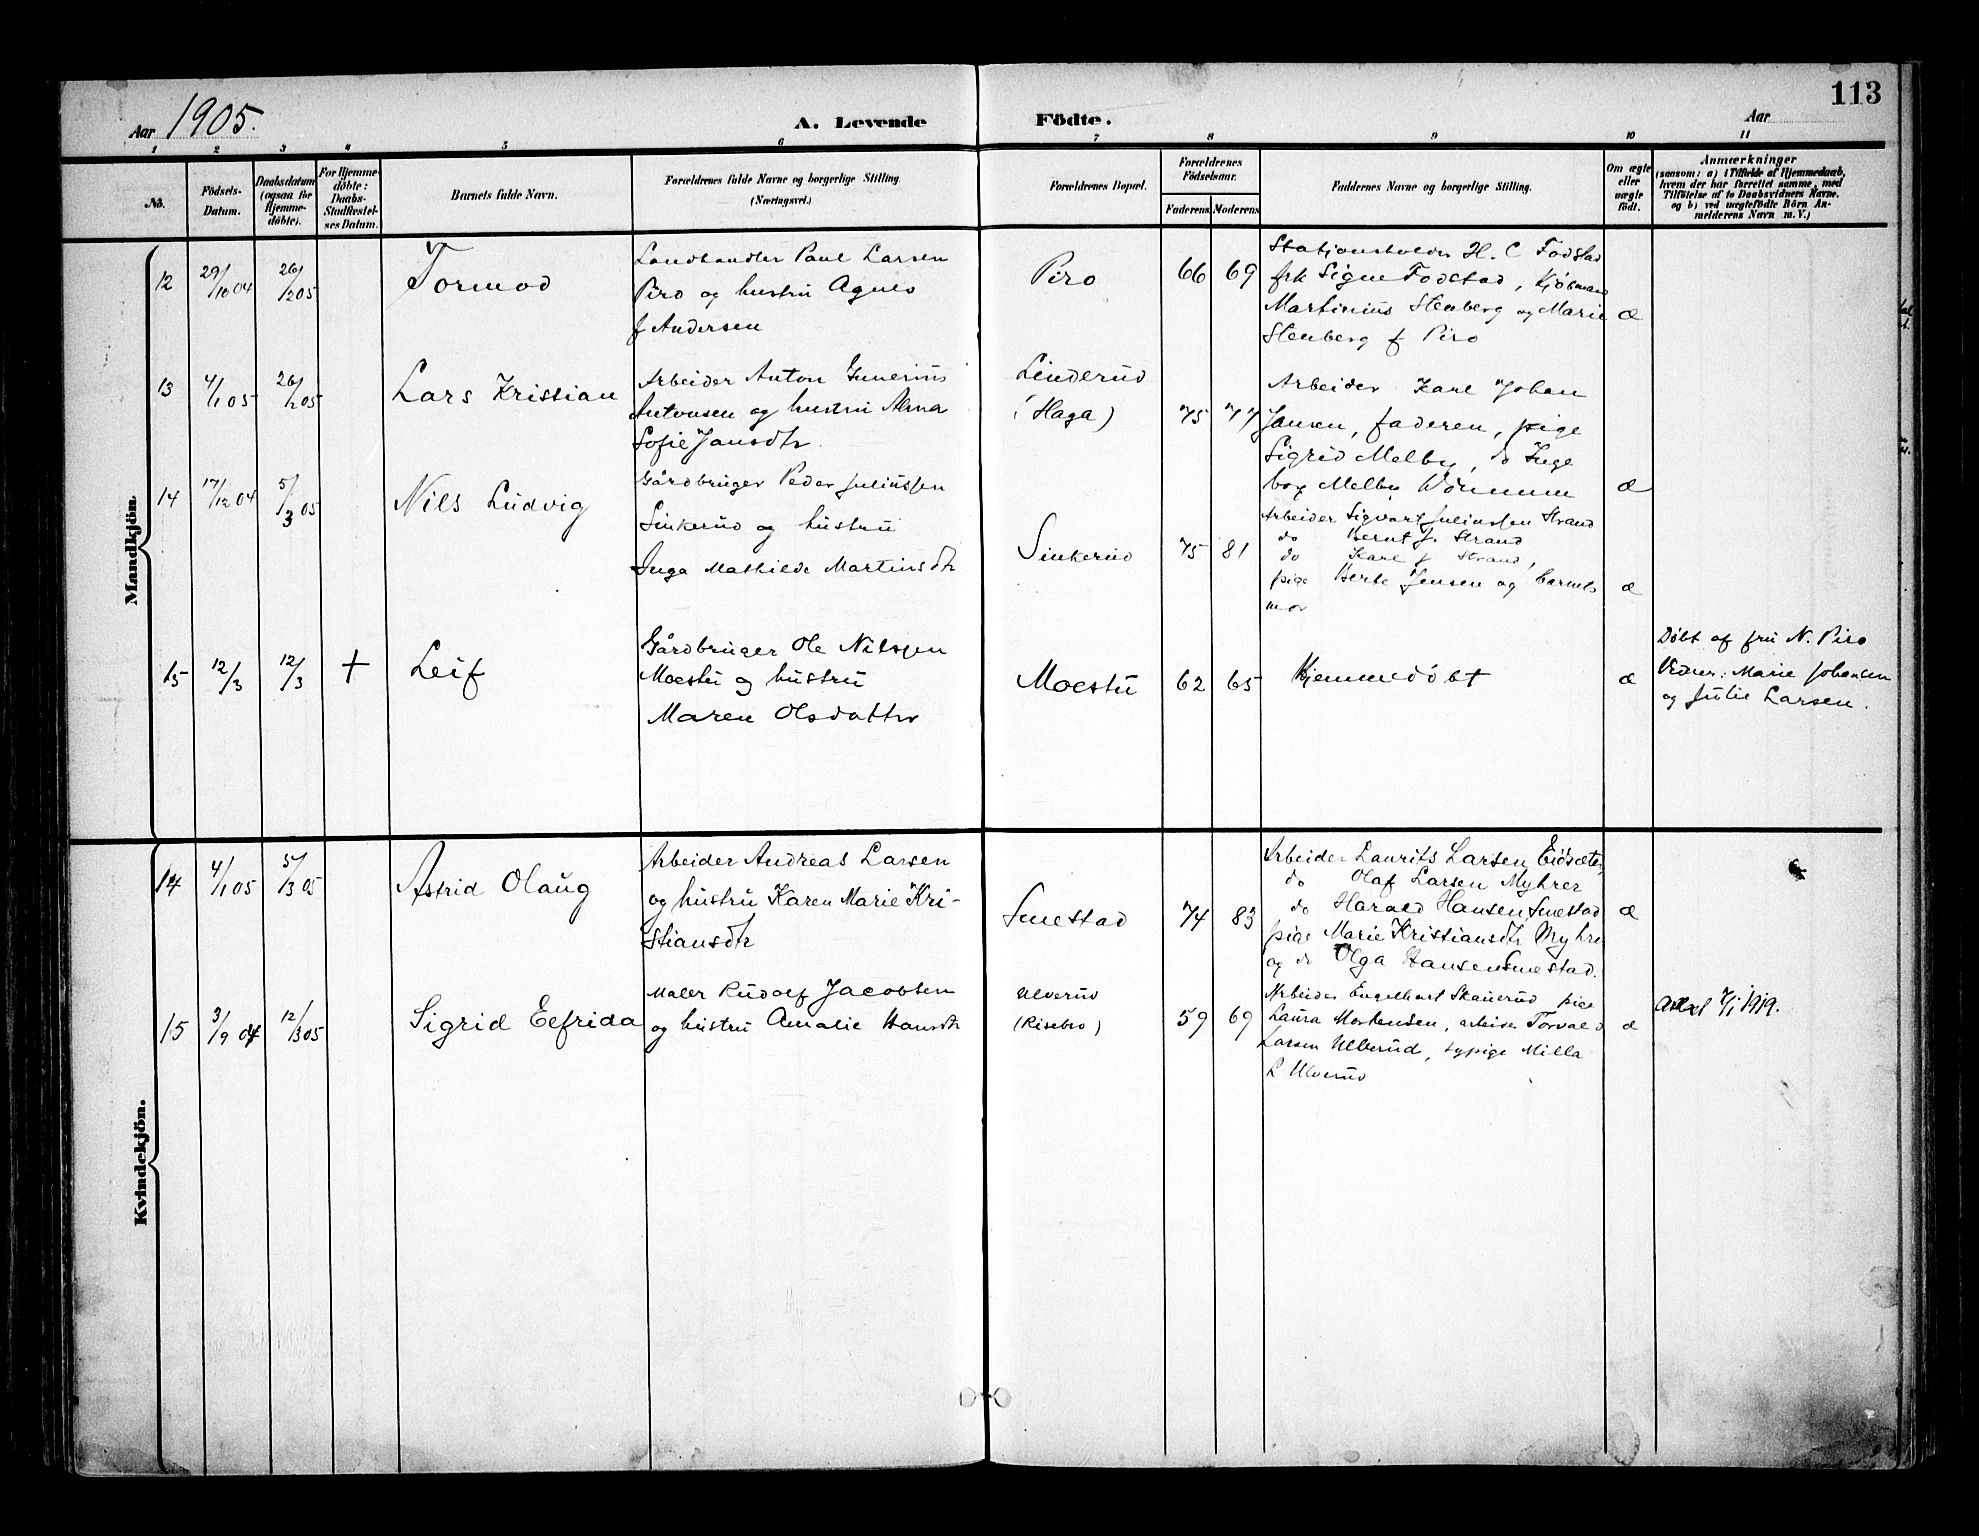 113
Aar 1905.
A. Levende Födte.
Aar
1 2 3 4 5 6 7 8 9 10 11
No.
Födsels-Datum.
Daabsdatum (ogsaa for Hjemme-döbte).
For Hjemme-döbte: Daabs-Stadfæstel-ses Datum.
Barnets fulde Navn.
Forældrenes fulde Navne og borgerlige Stilling.
(Næringsvei.)
Forældrenes Bopæl.
Forældrenes Födselsaar.
Faderens Moderens
Faddernes Navne og borgerlige Stilling.
Om ægte eller uægte födt.
Anmærkninger
(saasom: a) i Tilfælde af Hjemmedaab,
hvem der har forrettet samme, med
Tilföielse af to Daabsvidners Navne.
og b) ved uægtefödte Börn An-
melderens Navn m. V.)
Mandkjön.
12 29/10 04 26/2 05 Tormod
Landhandler Paul Larsen
Piro og hustru Agnes
f Andersen
Piro 66 69
Stationsholder H. C Fodstad
frk Signe Fodstad, Kjöbmand
Martinius Stenberg og Marie æ
Stenberg f Piro
13 4/1 05 26/2 05 Lars Kristian
Arbeider Anton
Antonsen og hustru Alma
Sofie Jansdtr.
Linderud
(Haga) 75 77
Arbeider Karl Johan
Jansen, faderen, pige
Sigrid Melby, do Inge
borg Melby æ
14 17/12 04 5/3 05 Nils Ludvig
Gårdbruger Peder Juliussen
Sinkerud og hustru
Inga Mathilde Martinsdtr
Sinkerud 75 81
Arbeider Sigvart Juliussen Strand
do Bernt J. Strand
do Karl J Strand,
pige Berte Jensen og barnets æ
mor
15 12/3 12/3 + Leif
Gårdbruger Ole Nilssen
Moestu og hustru
Maren Olsdatter
Moestu 62 65
Hjemmedöbt æ
Döbt af fru N. Piro
Vidner: Marie Johansen
og Julie Larsen.
Kvindekjön.
14 4/1 05 5/3 05 Astrid Olaug
Arbeider Andreas Larsen
og hustru Karen Marie Kri-
stiansdtr
Smestad 74 83
Arbeider Laurits Larsen Eidsæter,
do Olaf Larsen Myhrer
do Harald Hansen Smestad æ
pige Marie Kristiansdtr Myhre
og do Olga Hansen Smestad.
15 3/9 04 12/3 05 Sigrid Elfrida
Maler Rudolf Jacobsen
og hustru Amalie Hansdtr
Ulverud
(Risebro) 59 69
Arbeider Engelhart Skauerud, pige
Laura Mortensen, arbeider Torvald æ
Larsen Ulverud, sypige Milla
L Ulverud
1919.